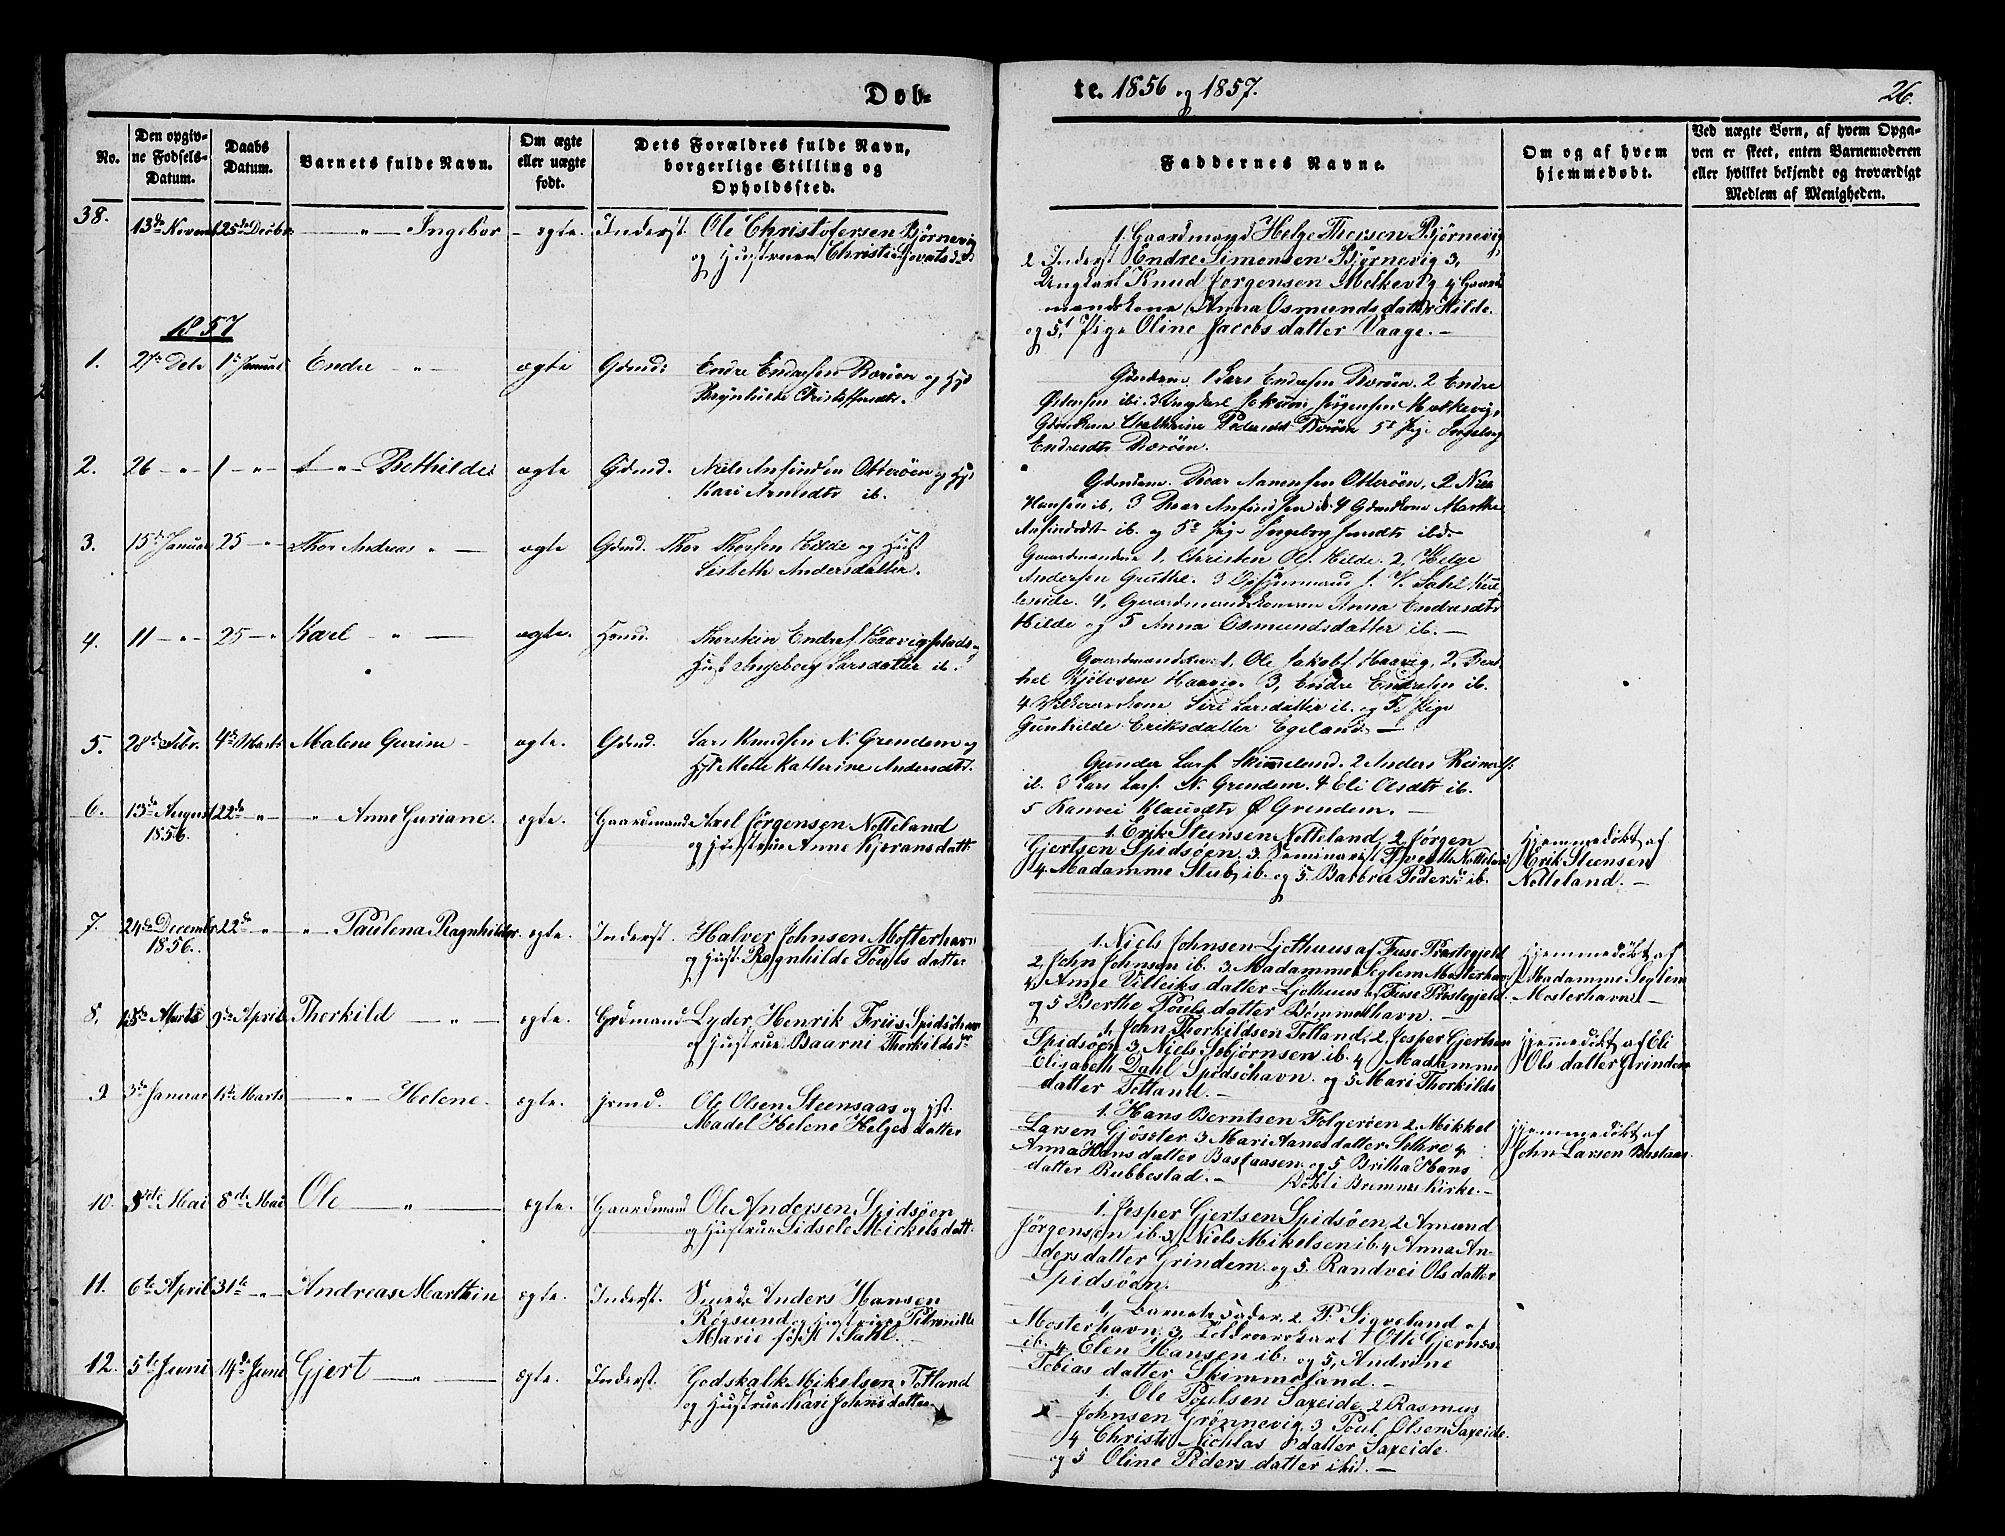 Døb-
te. 1856 og 1857.
26.
No.
Den opgiv-
ne Fødsels-
Datum.
Daabs
Datum.
Barnets fulde Navn.
Om ægte
eller uægte
født.
Dets Forældres fulde Navn,
borgerlige Stilling og
Opholdssted.
Faddernes Navne.
Om og af hvem
hjemmedøbt.
Ved uægte Børn, af hvem Opga-
ven er skeet, enten Barnemoderen
eller hvilket bekjendt og troværdigt
Medlem af Menigheden.
38. 13de Novem 25de Decbr — " — Ingebor - ægte. Inderst. Ole Christofersen Bjørnevig
og Hustruen Christi
1 Gaardmand Helge Thorsen Bjørnevig
2 Inderst Endre Simonsen Bjørnevig 3,
Ungkarl Knud Jørgensen Melkevig 4 Gaard
mandskone Anna Osmundsdatter Hilde.
og 5, Pige Oline Jacobsdatter Vaage. —
1857
1. 27de Dcb. 1ste Januar Endre — " — ægte Gdmd: Endre Endresen Børøen og Hst
Brynhilde Christoffersdtr.
Gdmdene 1 Lars Endresen Børøen. 2 Endre
Østensen ibi. 3 Ungkarl Jørgensen
Gdmdskone Cathrine Pedersdt Børøen 5t Pige Ingeborg
Endresdtr Børøen.
2. 26 — " — 1 — " — Bethilde ægte Gdmd. Niels Anfindsen Otterøen og Hst
Kari Arnesdtr ib.
Gdmdene. Aamensen Otterøen, 2 Niels
Hansen ib, 3 Anfindsen ib 4 Gdmdkone Marthe
Anfindsdt ib. og 5t Pige Ingeborg ibd.
3. 15de Januar 25 — " — Thor Andreas " — ægte Gdmd. Thor Thorsen Hilde og Hust
Lisbeth Andersdatter.
Gaardmændene 1, Christen Ols. Hilde. 2 Helge
Andersen 3
4, Gaardmandskonerne Anna Endresdtr
Hilde og 5 Anna Osmundsdatter ib. —
4 11 — " — 25 — " Karl — " — ægte. Hmd. Thorstein Endres.
Hust Ingeborg Larsdatter ib.
Gaardmændene 1. Ole Jakobs. Haavig, 2,
Haavig. 3, Endre Endresen ib.
4 Siri Larsdatter ib. og 5, Pige
Gunhilde Eriksdatter Egeland. —
5. 28de Febr. 4de Marts Malene Gurine — ægte. Gdmd. Lars Knudsen N. Grendem og
Hst Mette Katterine Andersdt.
Gunder Lars. Skimmeland. 2 Anders
ib. 3 Lars Lars. N. Grendem. 4 Eli Olsdtr ib.
5 Ranvei Klausdtr Ø Grendem. —
6. 13de August 22de — " — " Anne Guriane. ægte. Gaardmand Axel Jørgensen Notteland
1856.
og Hustrue Anne Kjøransdatt.
1. Erik Steensen Notteland, 2 Jørgen
Gjertsen Spidsøen. 3. Seminarist Notteland
4. Madamme Stub, ib. og 5. Barbra Peders ib.
Hjemmedøbt af
Erik Steensen
Notteland. —
7. 24de Decembr 22de — " — " Paulena Ragnhilde. ægte. Inderst. Halver Johnsen Mosterhavn
1856.
og Hust. Ragnhilde Pouls datter
1. Niels Johnsen Ljothuus af Fuse Præstegjeld
2, John Johnsen ib. 3. Madamme Seglem Mosterhavn
4, Anne Villeiks datter Ljothuus af Fuse Præstegjeld.
og 5 Berthe Pouls datter Bømmelhavn. —
Hjemmedøbt af
Madamme Seglem
Mosterhavn. —
8. Marts 9de April Thorkild — " — ægte. Grdmand Lyder Henrik Friis Spidsøhavn
og Hustrue Baarni Thorkildsdr
1, John Thorkildsen Totland, 2 Jesper Gjertsen
Spidsøen 3 Niels Asbjørnsen ib. 4 Madamme
Elisabeth Dahl Spidsøhavn. og 5 Mari Thorkilds
datter Totland. —
Hjemmedøbt af Eli
Ols datter Grindem
9 3de Januar Marts — " — Helene. ægte. Ole Olsen Steensaas og Hst.
Madel Helene Helges datter
1. Hans Berntsen Folgerøen 2 Mikkel
Larsen Gjøsæter. 3 Mari Aanesdatter Sethre 4
Anna Hans datter Bastaasen. og 5 Britha Hans
datter Rubbestad. — Døbt i Bremnes Kirke. —
Hjemmedøbt af
John Larsen Bastaas
10. Mai 8de Mai Ole — " — ægte. Gaardmand Ole Andersen Spidsøen
og Hustrue Sidsele Mickels datt.
1. Jesper Gjertsen Spidsøen, 2 Amund
Jørgensen ib. 3, Niels Mikelsen ib. 4 Anna An-
ders datter Grindem. og 5. Randvei Ols datter
Spidsøen.
11. 6te April 31te — " — Andreas Marthin ægte. Inderst. Smeds Anders Hansen
Røgsund og Hustrue Petronille
Marie født Sahl. —
1, Barnets Fader. 2 P. Sigveland af
Mosterhavn. 3, Otte Gjernæs
ib. 4 Elen Hansen ib. og 5, Andrine
Tobias datter Skimmeland. —
12. 5te Juni 14de Juni Gjert — " — ægte. Inderst. Godskalk Mikelsen Totland
og Hustrue Kari Johnsdatter
1. Ole Poulsen Saxeide, 2 Rasmus
Johnsen Grønnevig. 3 Poul Olsen Saxeide.
4 Christi Nichlas datter Saxeide.
og 5 Oline Peders datter ibid. —